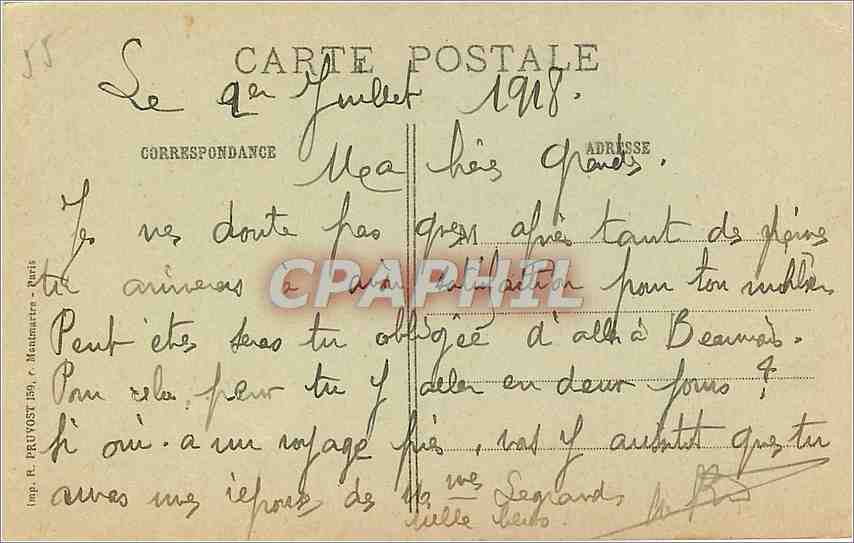 55
CARTE POSTALE
Le 1er Juillet 1918.
CORRESPONDANCE
ADRESSE
Ma chère grande.
Je ne doute pas que après tant de peine
tu arriveras à avoir satisfaction pour ton
Peut être seras tu obligée d'aller à Beauvais.
Pour cela, peux tu y aller en deux jours ?
Si oui. a un voyage près, vas y aussitot que tu
auras une réponse de Mme Legrand
mille bers
CPAPHIL
Imp. R. PRUVOST 159, r. Montmartre - Paris